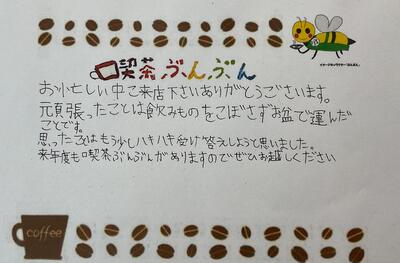 イメージキャラクター「ぶんぶん」
喫茶ぶんぶん
お忙しい中ご来店下さいありがとうございます。
頑張ったことは飲みものをこぼさずお盆で運んだ
ことです。
思ったことはもう少しハキハキ受け答えしようと思いました。
来年度も喫茶ぶんぶんがありますのでぜひお越しください
coffee